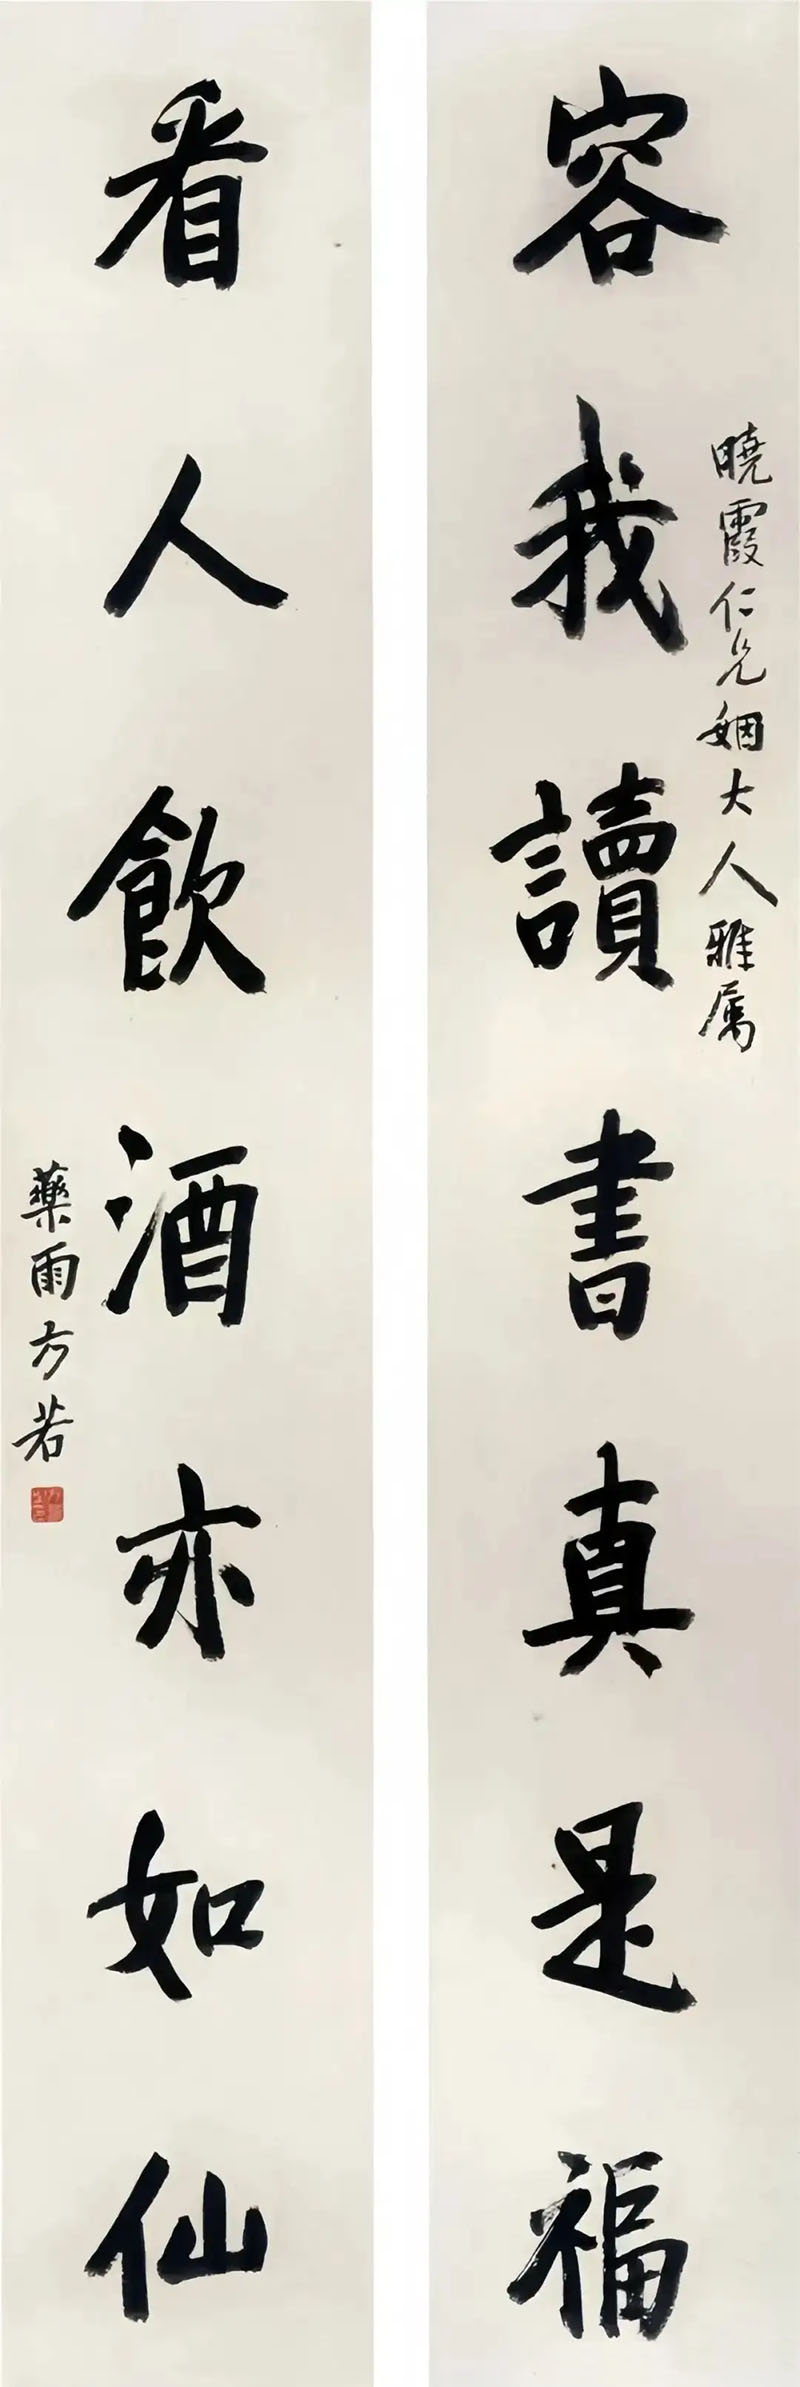 曉霞仁兄姻大人雅属
容我讀書真是福
看人飲酒亦如仙
藥雨方若